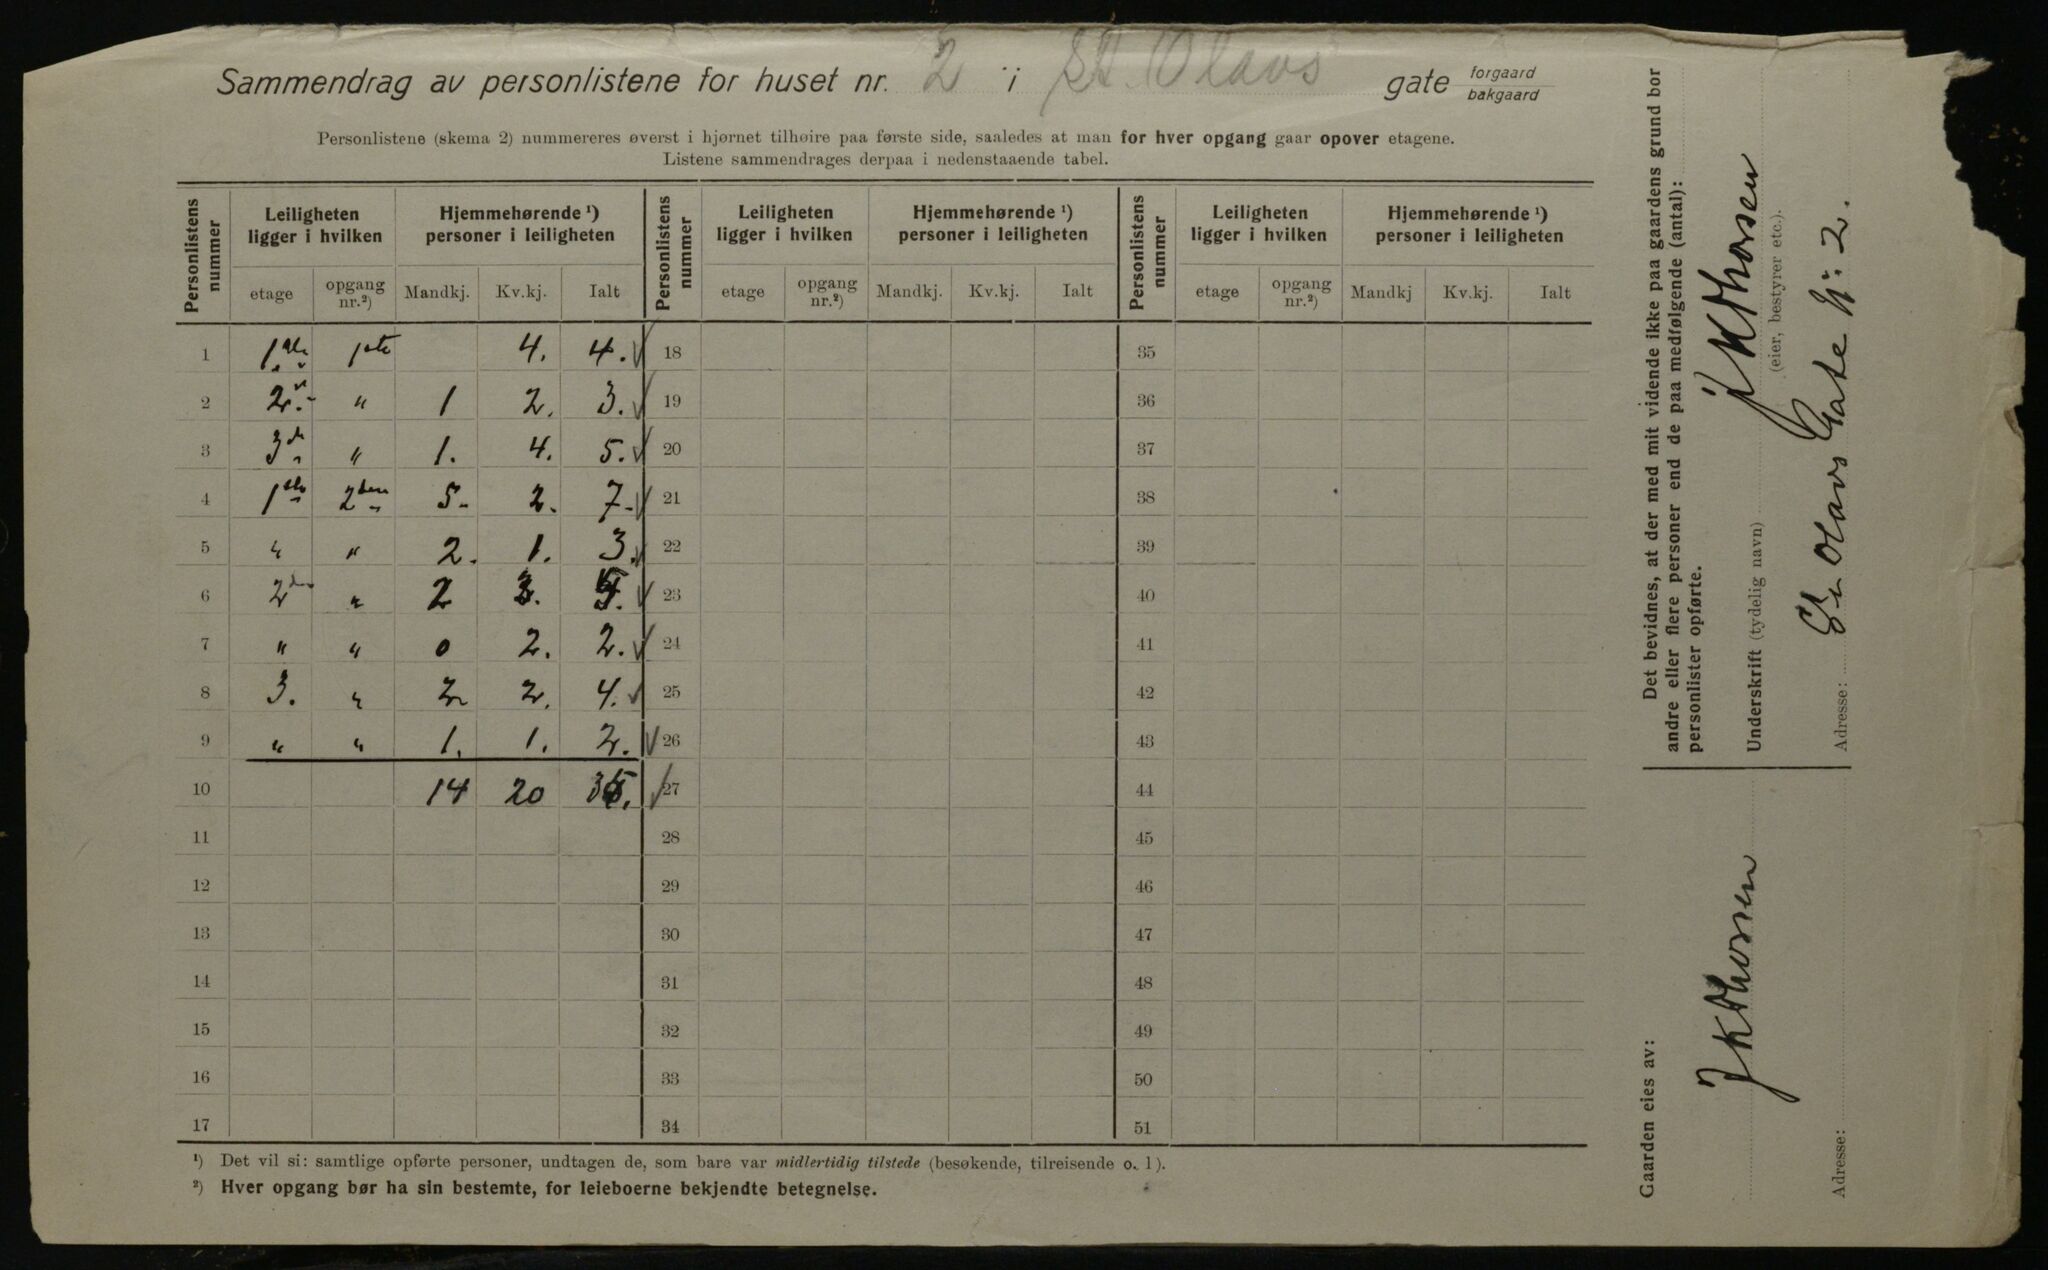 Sammendrag av personlistene for huset nr. 2 i St. Olavs gate forgaard bakgaard
Personlistene (skema 2) nummereres øverst i hjørnet tilhøire paa første side, saaledes at man for hver opgang gaar opover etagene.
Listene sammendrages derpaa i nedenstaaende tabel.
Personlistens nummer | Leiligheten ligger i hvilken | Hjemmehørende ¹) personer i leiligheten | Personlistens nummer | Leiligheten ligger i hvilken | Hjemmehørende ¹) personer i leiligheten | Personlistens nummer | Leiligheten ligger i hvilken | Hjemmehørende ¹) personer i leiligheten
etage | opgang nr.²) | Mandkj. | Kv.kj. | Ialt | etage | opgang nr.²) | Mandkj. | Kv.kj. | Ialt | etage | opgang nr.²) | Mandkj | Kv.kj. | Ialt
1 | 1ste | 1ste | | 4. | 4. | 18 | 35
2 | 2. | " | 1 | 2. | 3. | 19 | 36
3 | 3de | " | 1. | 4. | 5. | 20 | 37
4 | 1ste | 2den | 5. | 2. | 7. | 21 | 38
5 | " | " | 2. | 1. | 3. | 22 | 39
6 | 2den | " | 2 | | 23 | 40
7 | " | " | 0 | 2. | 2. | 24 | 41
8 | 3. | " | 2 | 2. | 4. | 25 | 42
9 | " | " | 1. | 1. | 2. | 26 | 43
10 | | | 14 | 20 | | 27 | 44
11 | 28 | 45
12 | 29 | 46
13 | 30 | 47
14 | 31 | 48
15 | 32 | 49
16 | 33 | 50
17 | 34 | 51
¹) Det vil si: samtlige opførte personer, undtagen de, som bare var midlertidig tilstede (besøkende, tilreisende o. l).
²) Hver opgang bør ha sin bestemte, for leieboerne bekjendte betegnelse.
Det bevidnes, at der med mit vidende ikke paa gaardens grund bor
andre eller flere personer end de paa medfølgende (antal):
personlister opførte.
Underskrift (tydelig navn) J K Thorsen
(eier, bestyrer etc.).
Adresse: St. Olavs Gate Nr: 2.
Gaarden eies av:
J K Thorsen
Adresse: